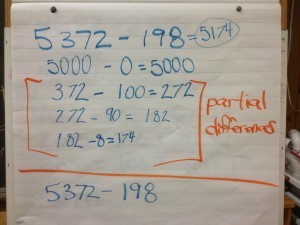 5372 - 198 = 5174
5000 - 0 = 5000
372 - 100 = 272
272 - 90 = 182
182 - 8 = 174
partial
differences
5372 - 198